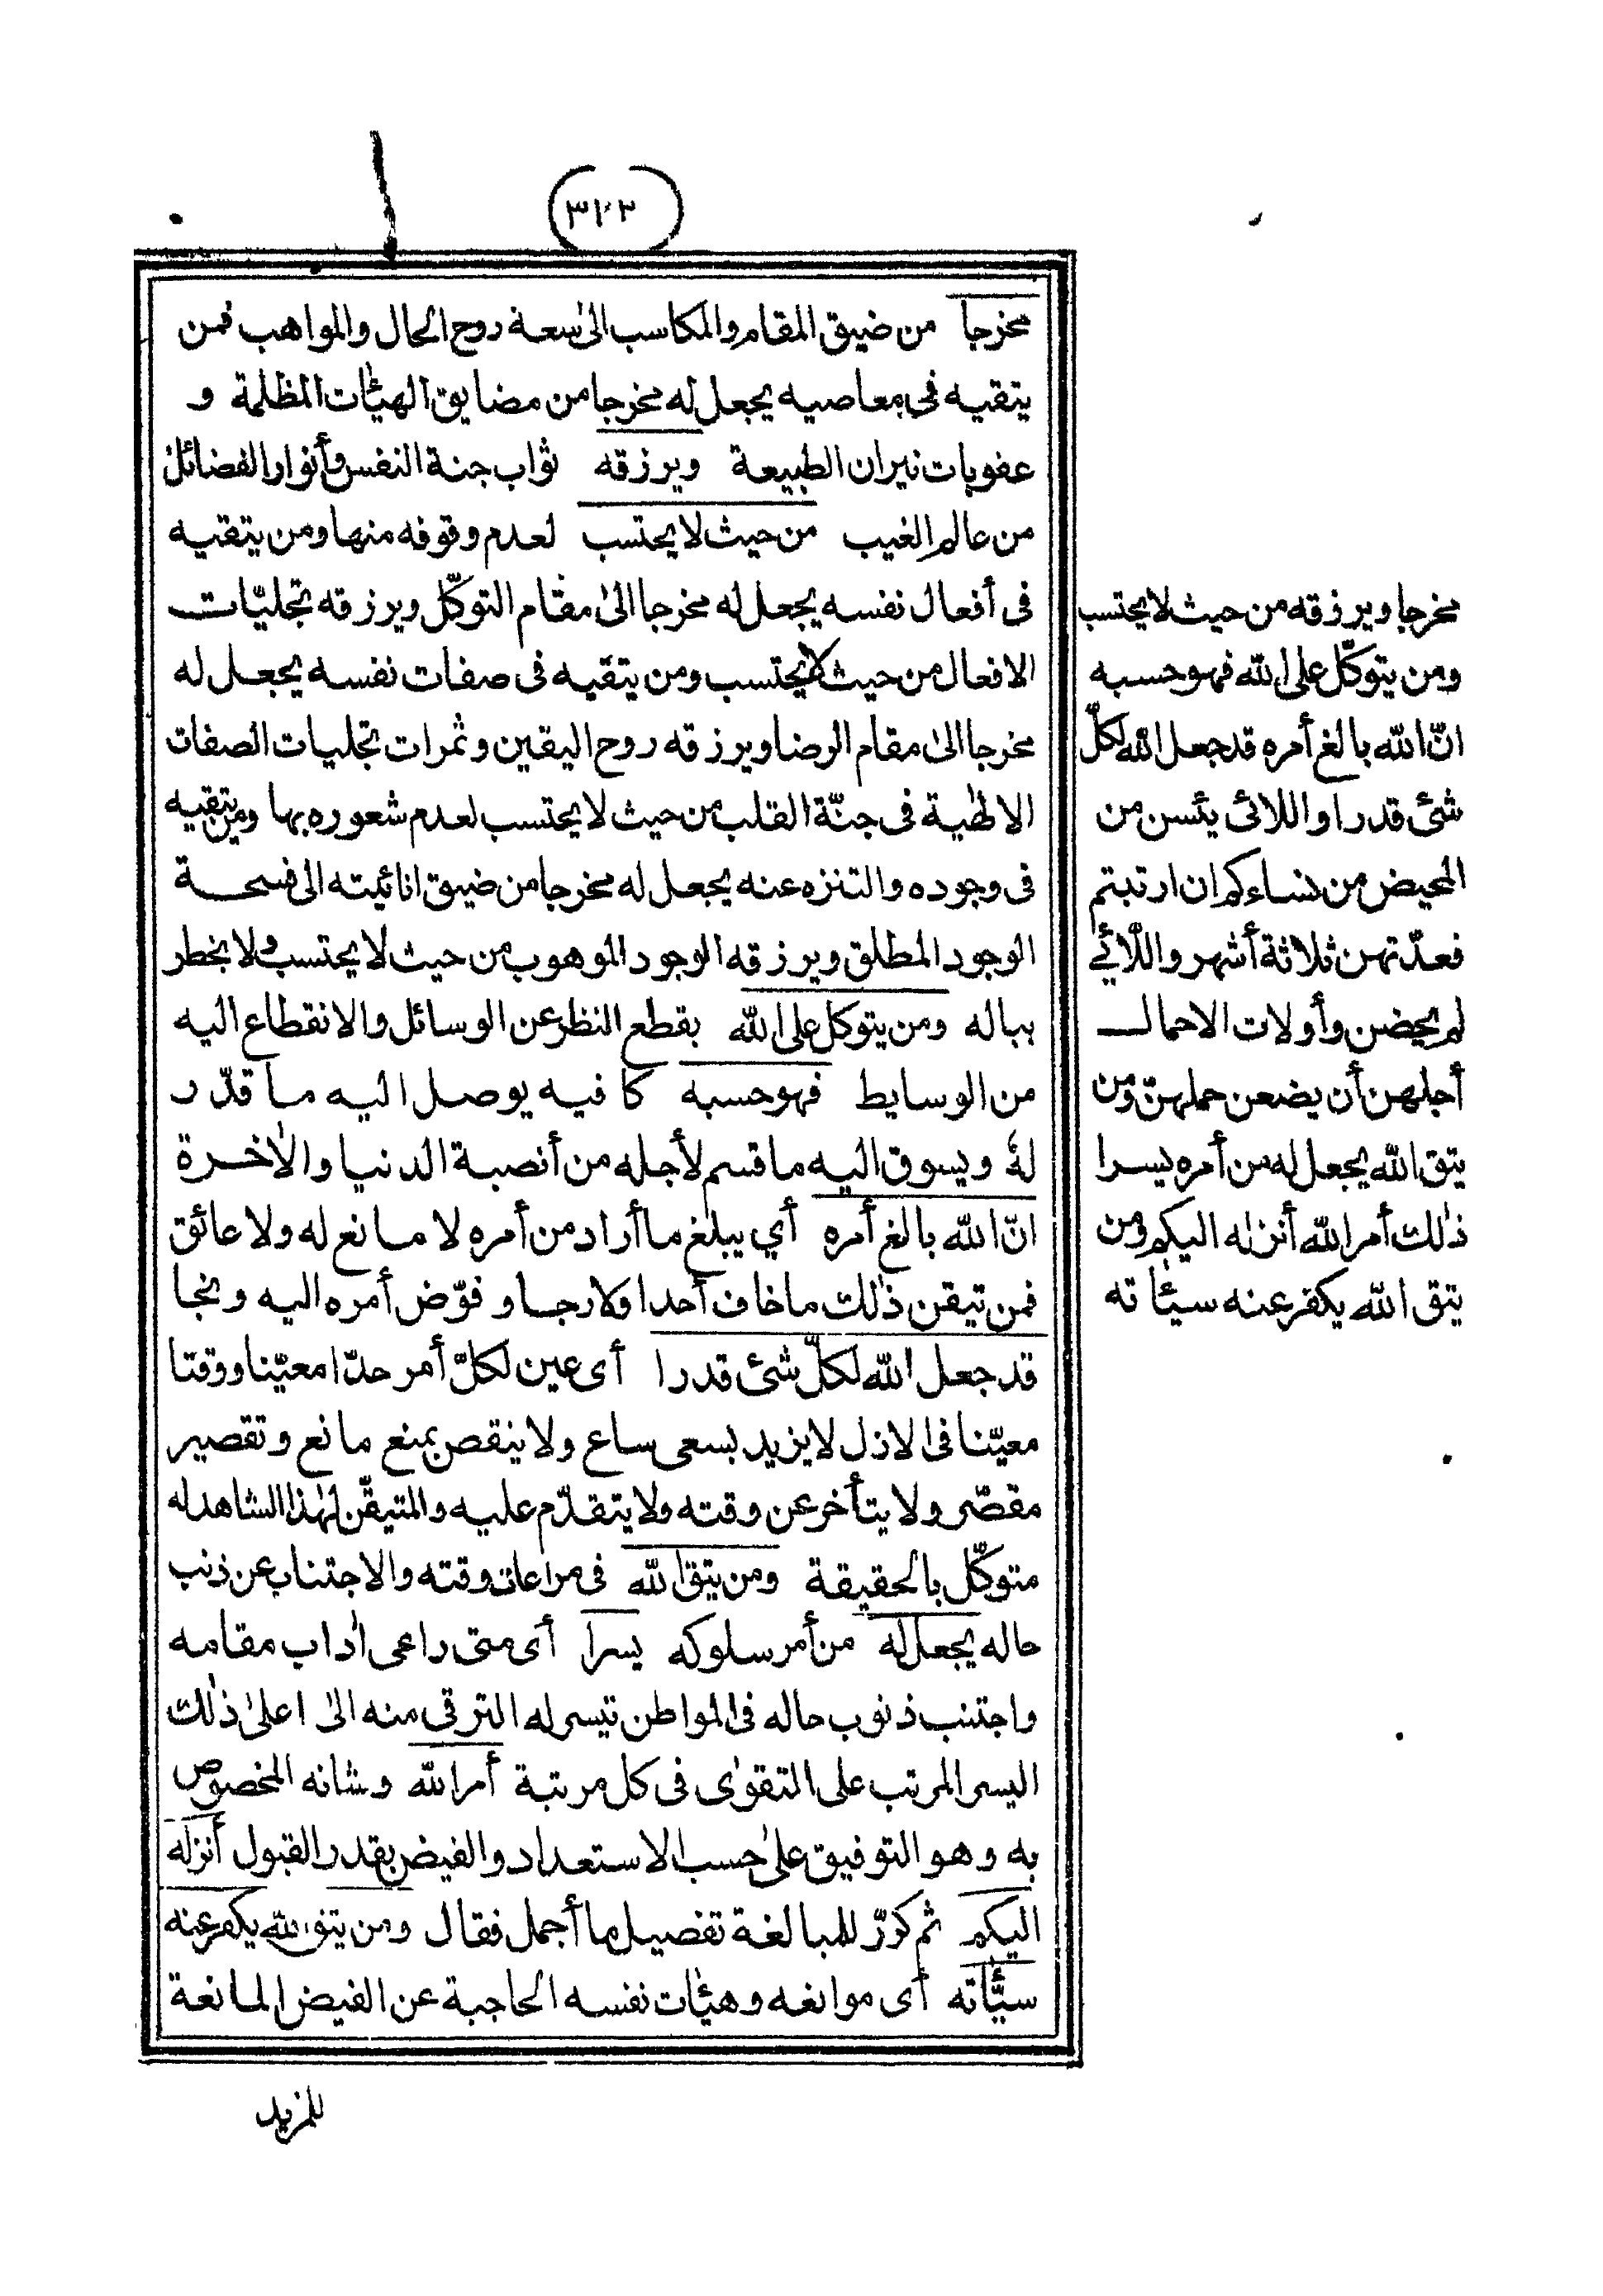 (٣١٢)
مخرجا من ضيق المقام والمكاسب الىٰ سعة روح الحال والمواهب فمن
يتقيه فى معاصيه يجعل له مخرجا من مضايق الهيئات المظلمة و
عقوبات نيران الطبيعة ويرزقه ثواب جنة النفس وأنوار الفضائل
من عالم الغيب من حيث لا يحتسب لعدم وقوفه منها ومن يتقيه
فى أفعال نفسه يجعل له مخرجا الىٰ مقام التوكّل ويرزقه تجليّات
الافعال من حيث لا يحتسب ومن يتقيه فى صفات نفسه يجعل له
مخرجا الىٰ مقام الرضا ويرزقه روح اليقين وثمرات تجليات الصفات
الالٰهية فى جنّة القلب من حيث لا يحتسب لعدم شعوره بها ومن يتقيه
فى وجوده والتنزه عنه يجعل له مخرجا من ضيق انائيته الى فسحة
الوجود المطلق ويرزقه الوجود الموهوب من حيث لا يحتسب ولا يخطر
بباله ومن يتوكل على الله بقطع النظر عن الوسائل والانقطاع اليه
من الوسايط فهو حسبه كافيه يوصل اليه ما قدّر
لهٗ ويسوق اليه ما قسم لأجله من أنصبة الدنيا والاٰخرة
انّ الله بالغ أمره أي يبلغ ما أراد من أمره لا مانع له ولا عائق
فمن تيقن ذٰلك ما خاف أحدا ولا رجا و فوّض أمره اليه ونجا
قد جعل الله لكلّ شئ قدرا أى عين لكلّ أمر حدّا معيّنا ووقتا
معيّنا فى الازل لا يزيد بسعى ساع ولا ينقص بمنع مانع وتقصير
مقصّر ولا يتأخر عن وقته ولا يتقدّم عليه والمتيقّن لهٰذا الشاهد له
متوكّل بالحقيقة ومن يتق الله فى مراعات وقته والاجتناب عن ذنب
حاله يجعل له من أمر سلوكه يسرا أى متى راعى اٰداب مقامه
واجتنب ذنوب حاله فى المواطن تيسر له الترقى منه الىٰ اعلىٰ ذٰلك
اليسر المرتب على التقوٰى فى كل مرتبة أمر الله وشانه المخصوص
به وهو التوفيق علىٰ حسب الاستعداد والفيض بقدر القبول أنزله
اليكم ثم كرّر للمبالغة تفصيل ما أجمل فقال ومن يتق الله يكفر عنه
سيّئاته أى موانعه وهيئات نفسه الحاجبة عن الفيض المانعة
للمزيد
مخرجا ويرزقه من حيث لا يحتسب
ومن يتوكّل على الله فهو حسبه
انّ الله بالغ أمره قد جعل الله لكلّ
شئ قدرا واللائى يئسن من
المحيض من نساءكم ان ارتبتم
فعدّتهن ثلاثة أشهر واللّائي
لم يحضن وأولات الاحمال
أجلهن أن يضعن حملهنّ ومن
يتق الله يجعل له من أمره يسرا
ذٰلك أمر الله أنزله اليكم ومن
يتق الله يكفر عنه سيئاته